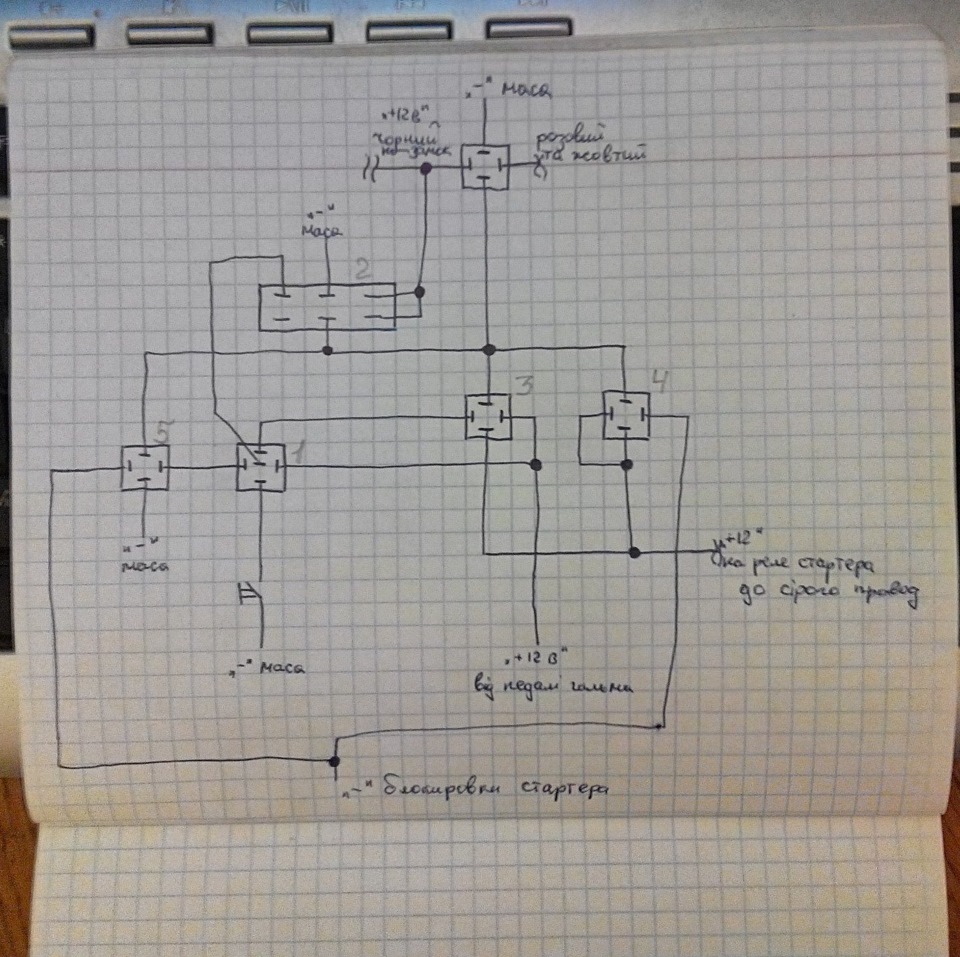 „-" маса
„+12В"
чорний
на замок
розовий
та жовтий
„-"
маса
2
3
4
5
1
„-"
маса
„+12"
на реле стартера
до сірого провод
„-" маса
„+12 В"
від педалі гальма
„-" блокировки стартера